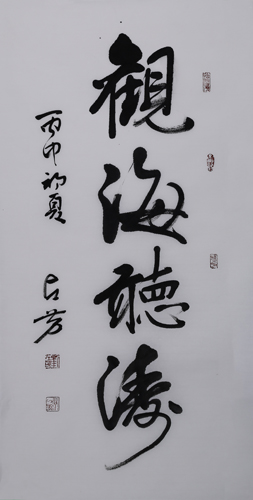 觀海聽濤
丙申初夏
占芳